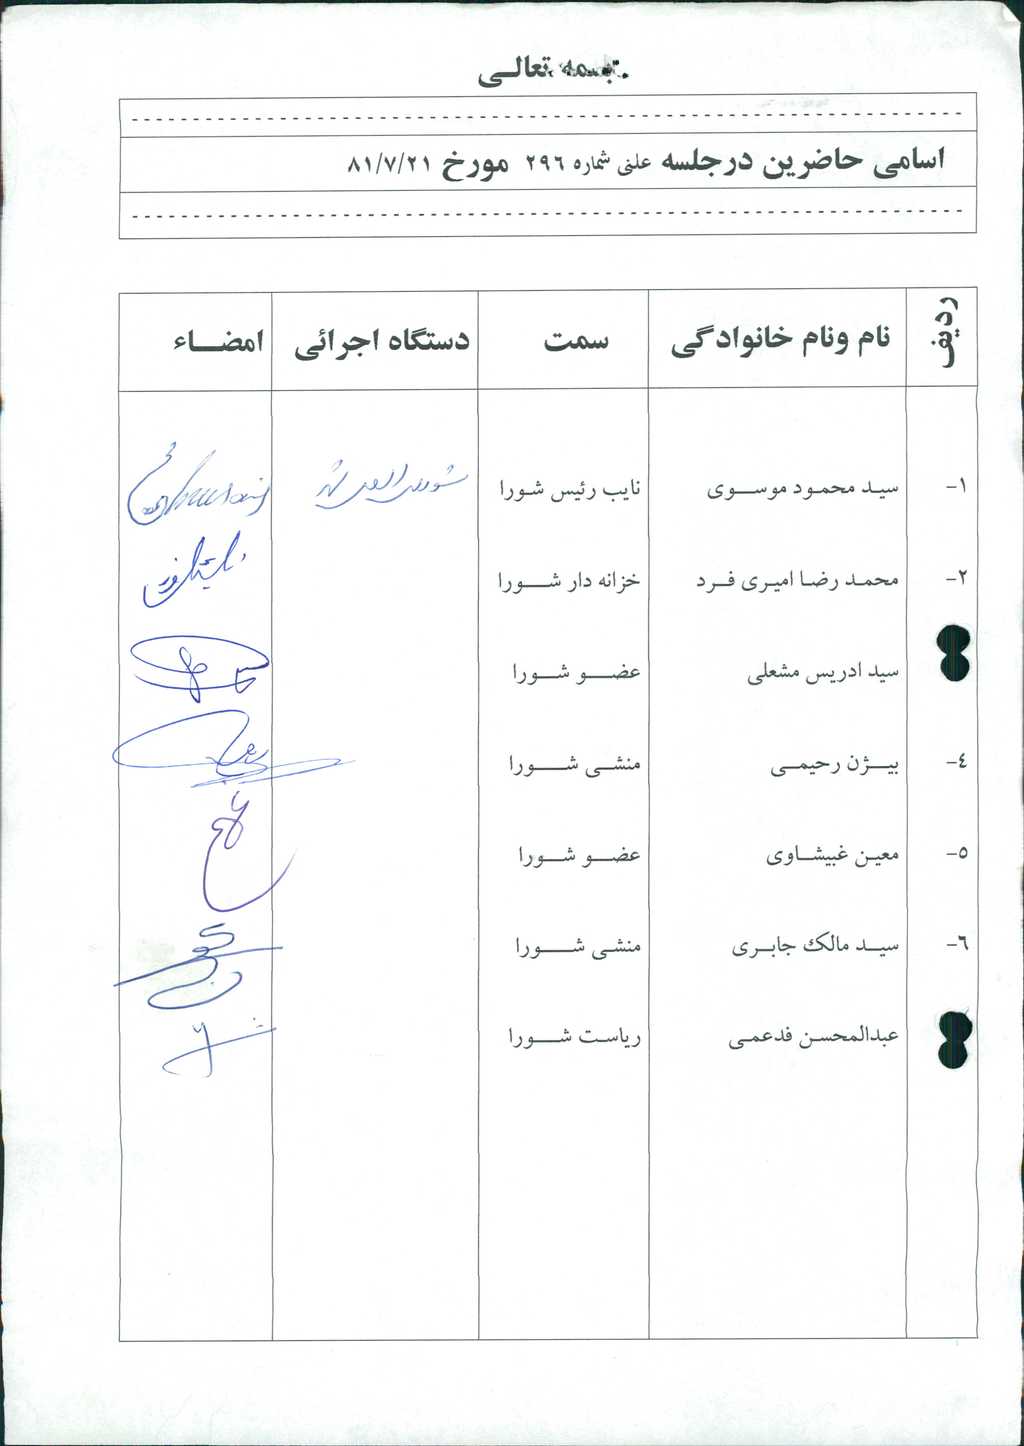 بسمه تعالی
اسامی حاضرین درجلسه علنی شماره ۲۹۶ مورخ ۸۱/۷/۲۱
ردیف نام ونام خانوادگی سمت دستگاه اجرائی امضاء
۱- سید محمود موسوی نایب رئیس شورا شورای اسلامی شهر
۲- محمد رضا امیری فرد خزانه دار شورا
سید ادریس مشعلی عضو شورا
۴- بیژن رحیمی منشی شورا
۵- معین غبیشاوی عضو شورا
۶- سید مالک جابری منشی شورا
عبدالمحسن فدعمی ریاست شورا